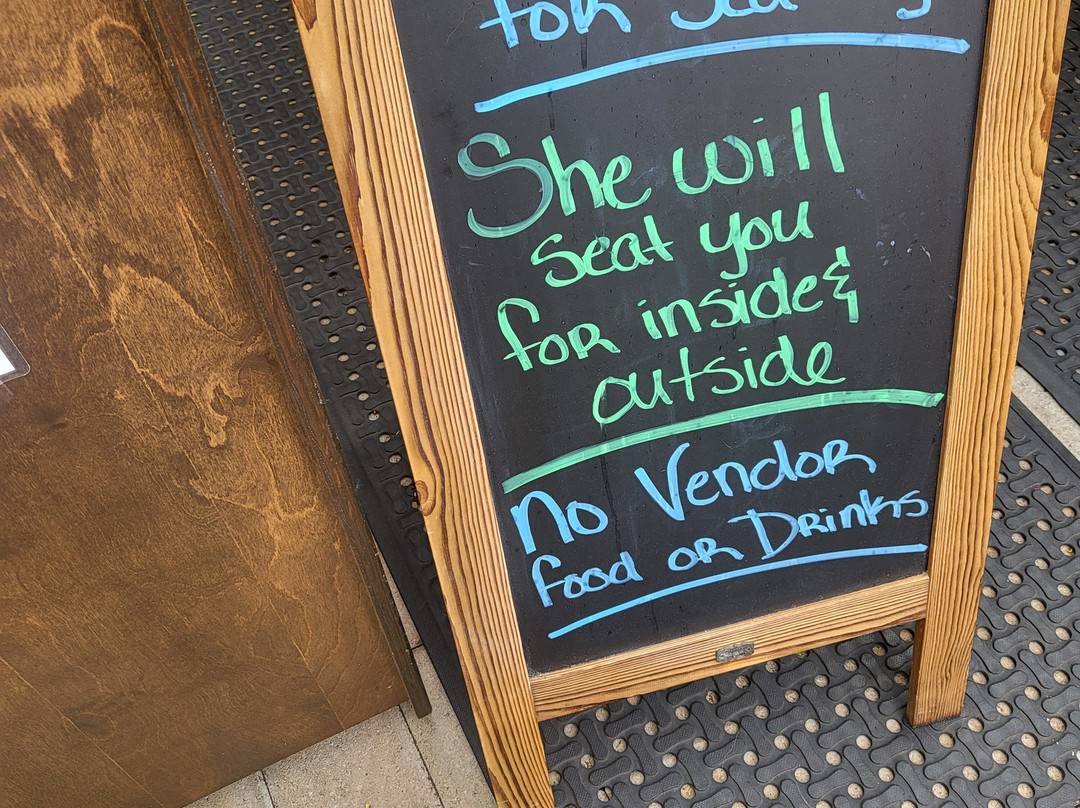 for
She will
seat you
for inside &
outside
No Vendor
food or Drinks